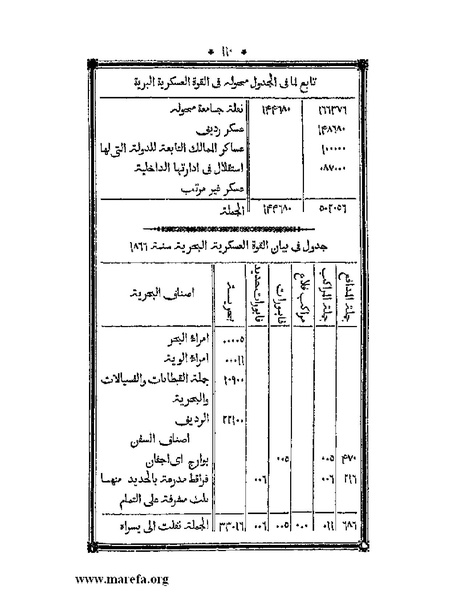 * ١١٠ *
تابع لما فى الجدول محوله فى القوة العسكرية البرية
١٦٦٣٧٦ ١٤٤٦٨٠ نقلة جامعة محوله
١٤٨٦٨٠ عسكر رديف
١٠٠٠٠٠ عساكر الممالك التابعة للدولة التى لها
٠٨٧٠٠٠ استقلال فى ادارتها الداخلية
عسكر غير مرتب
٥٠٢٠٥٦ ١٤٤٦٨٠ الجملة
جدول فى بيان القوة العسكرية البحرية سنة ١٨٦٦
جملة المدافع جملة المراكب مراكب قلاع فابورات فابورات حديد بحرية اصناف البحرية
٠٠٠٠٥ امراء البحر
٠٠٠١١ امراء الوية
١٠٩٠٠ جملة القبطانات والفسيالات
والبحرية
٢٢١٠٠ الرديف
اصناف السفن
٤٧٠ ٠٠٥ ٠٠٥ بوارج اى اجفان
٢١٦ ٠٠٦ ٠٠٦ فراقط مدرعة بالحديد منها
ثلث مفرقة على التمام
٦٨٦ ٠١١ ٠٠٠ ٠٠٥ ٠٠٦ ٣٣٠١٦ الجملة نقلت الى يسراه
www.marefa.org